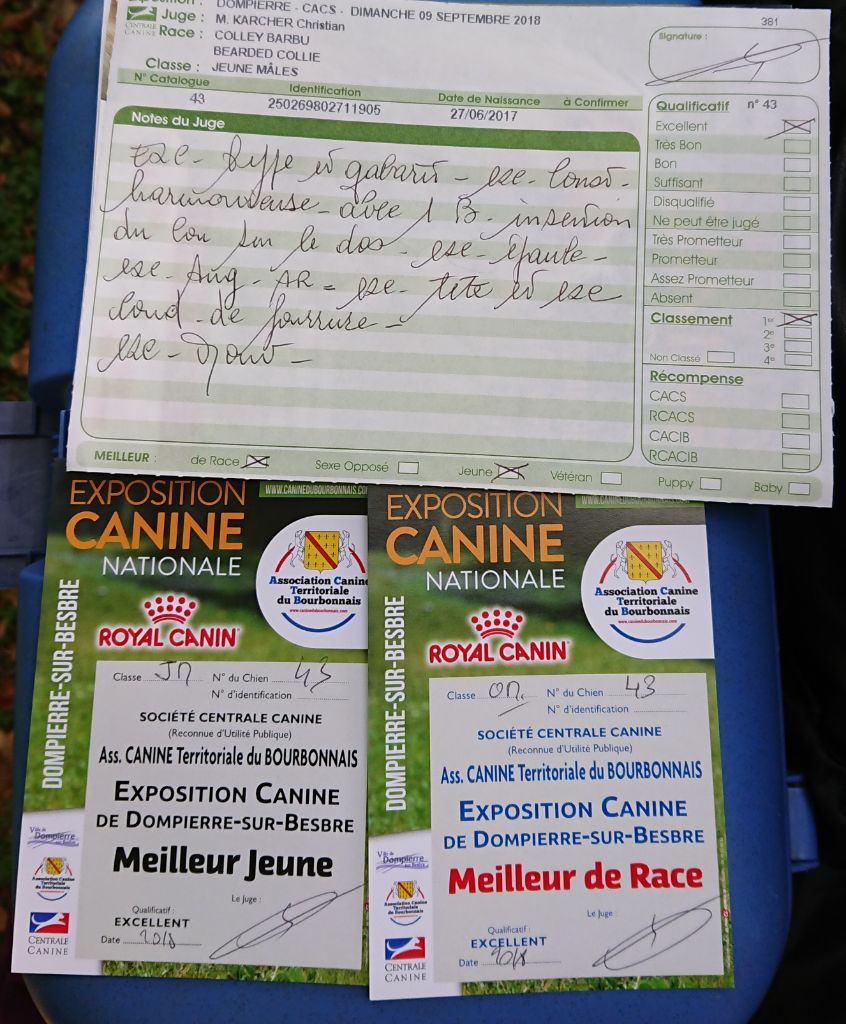 DOMPIERRE - CACS - DIMANCHE 09 SEPTEMBRE 2018
Juge : M. KARCHER Christian
Race : COLLEY BARBU
BEARDED COLLIE
Classe : JEUNE MÂLES
CENTRALE CANINE
381
Signature :
N° Catalogue Identification Date de Naissance à Confirmer
43 250269802711905 27/06/2017
Notes du Juge
Exc - Type et gabarit - exc -
harmonieuse - avec 1 B. insertion
du cou sur le dos - exc - épaule -
exc - Ang - AR - exc - tête et exc
cond - de fourrure -
exc -
Qualificatif n° 43
Excellent
Très Bon
Bon
Suffisant
Disqualifié
Ne peut être jugé
Très Prometteur
Prometteur
Assez Prometteur
Absent
Classement 1er
2e
3e
Non Classé 4e
Récompense
CACS
RCACS
CACIB
RCACIB
MEILLEUR : de Race Sexe Opposé Jeune Vétéran Puppy Baby
EXPOSITION
WWW.CANINEDUBOURBONNAIS.CO
CANINE
NATIONALE
Association Canine
Territoriale
du Bourbonnais
www.caninedubourbonnais.com
ROYAL CANIN
DOMPIERRE-SUR-BESBRE
Classe JM N° du Chien 43
N° d'identification
SOCIÉTÉ CENTRALE CANINE
(Reconnue d'Utilité Publique)
Ass. CANINE Territoriale du BOURBONNAIS
EXPOSITION CANINE
DE DOMPIERRE-SUR-BESBRE
Meilleur Jeune
Qualificatif :
EXCELLENT
Le Juge :
Date 2018
Ville de
Dompierre
Association Canine
Territoriale
du Bourbonnais
CENTRALE
CANINE
EXPOSITION
CANINE
NATIONALE
Association Canine
Territoriale
du Bourbonnais
www.caninedubourbonnais.com
ROYAL CANIN
DOMPIERRE-SUR-BESBRE
Classe OM. N° du Chien 43
N° d'identification
SOCIÉTÉ CENTRALE CANINE
(Reconnue d'Utilité Publique)
Ass. CANINE Territoriale du BOURBONNAIS
EXPOSITION CANINE
DE DOMPIERRE-SUR-BESBRE
Meilleur de Race
Qualificatif :
EXCELLENT
Le Juge :
Date 2018
Ville de
Dompierre
Association Canine
Territoriale
du Bourbonnais
CENTRALE
CANINE